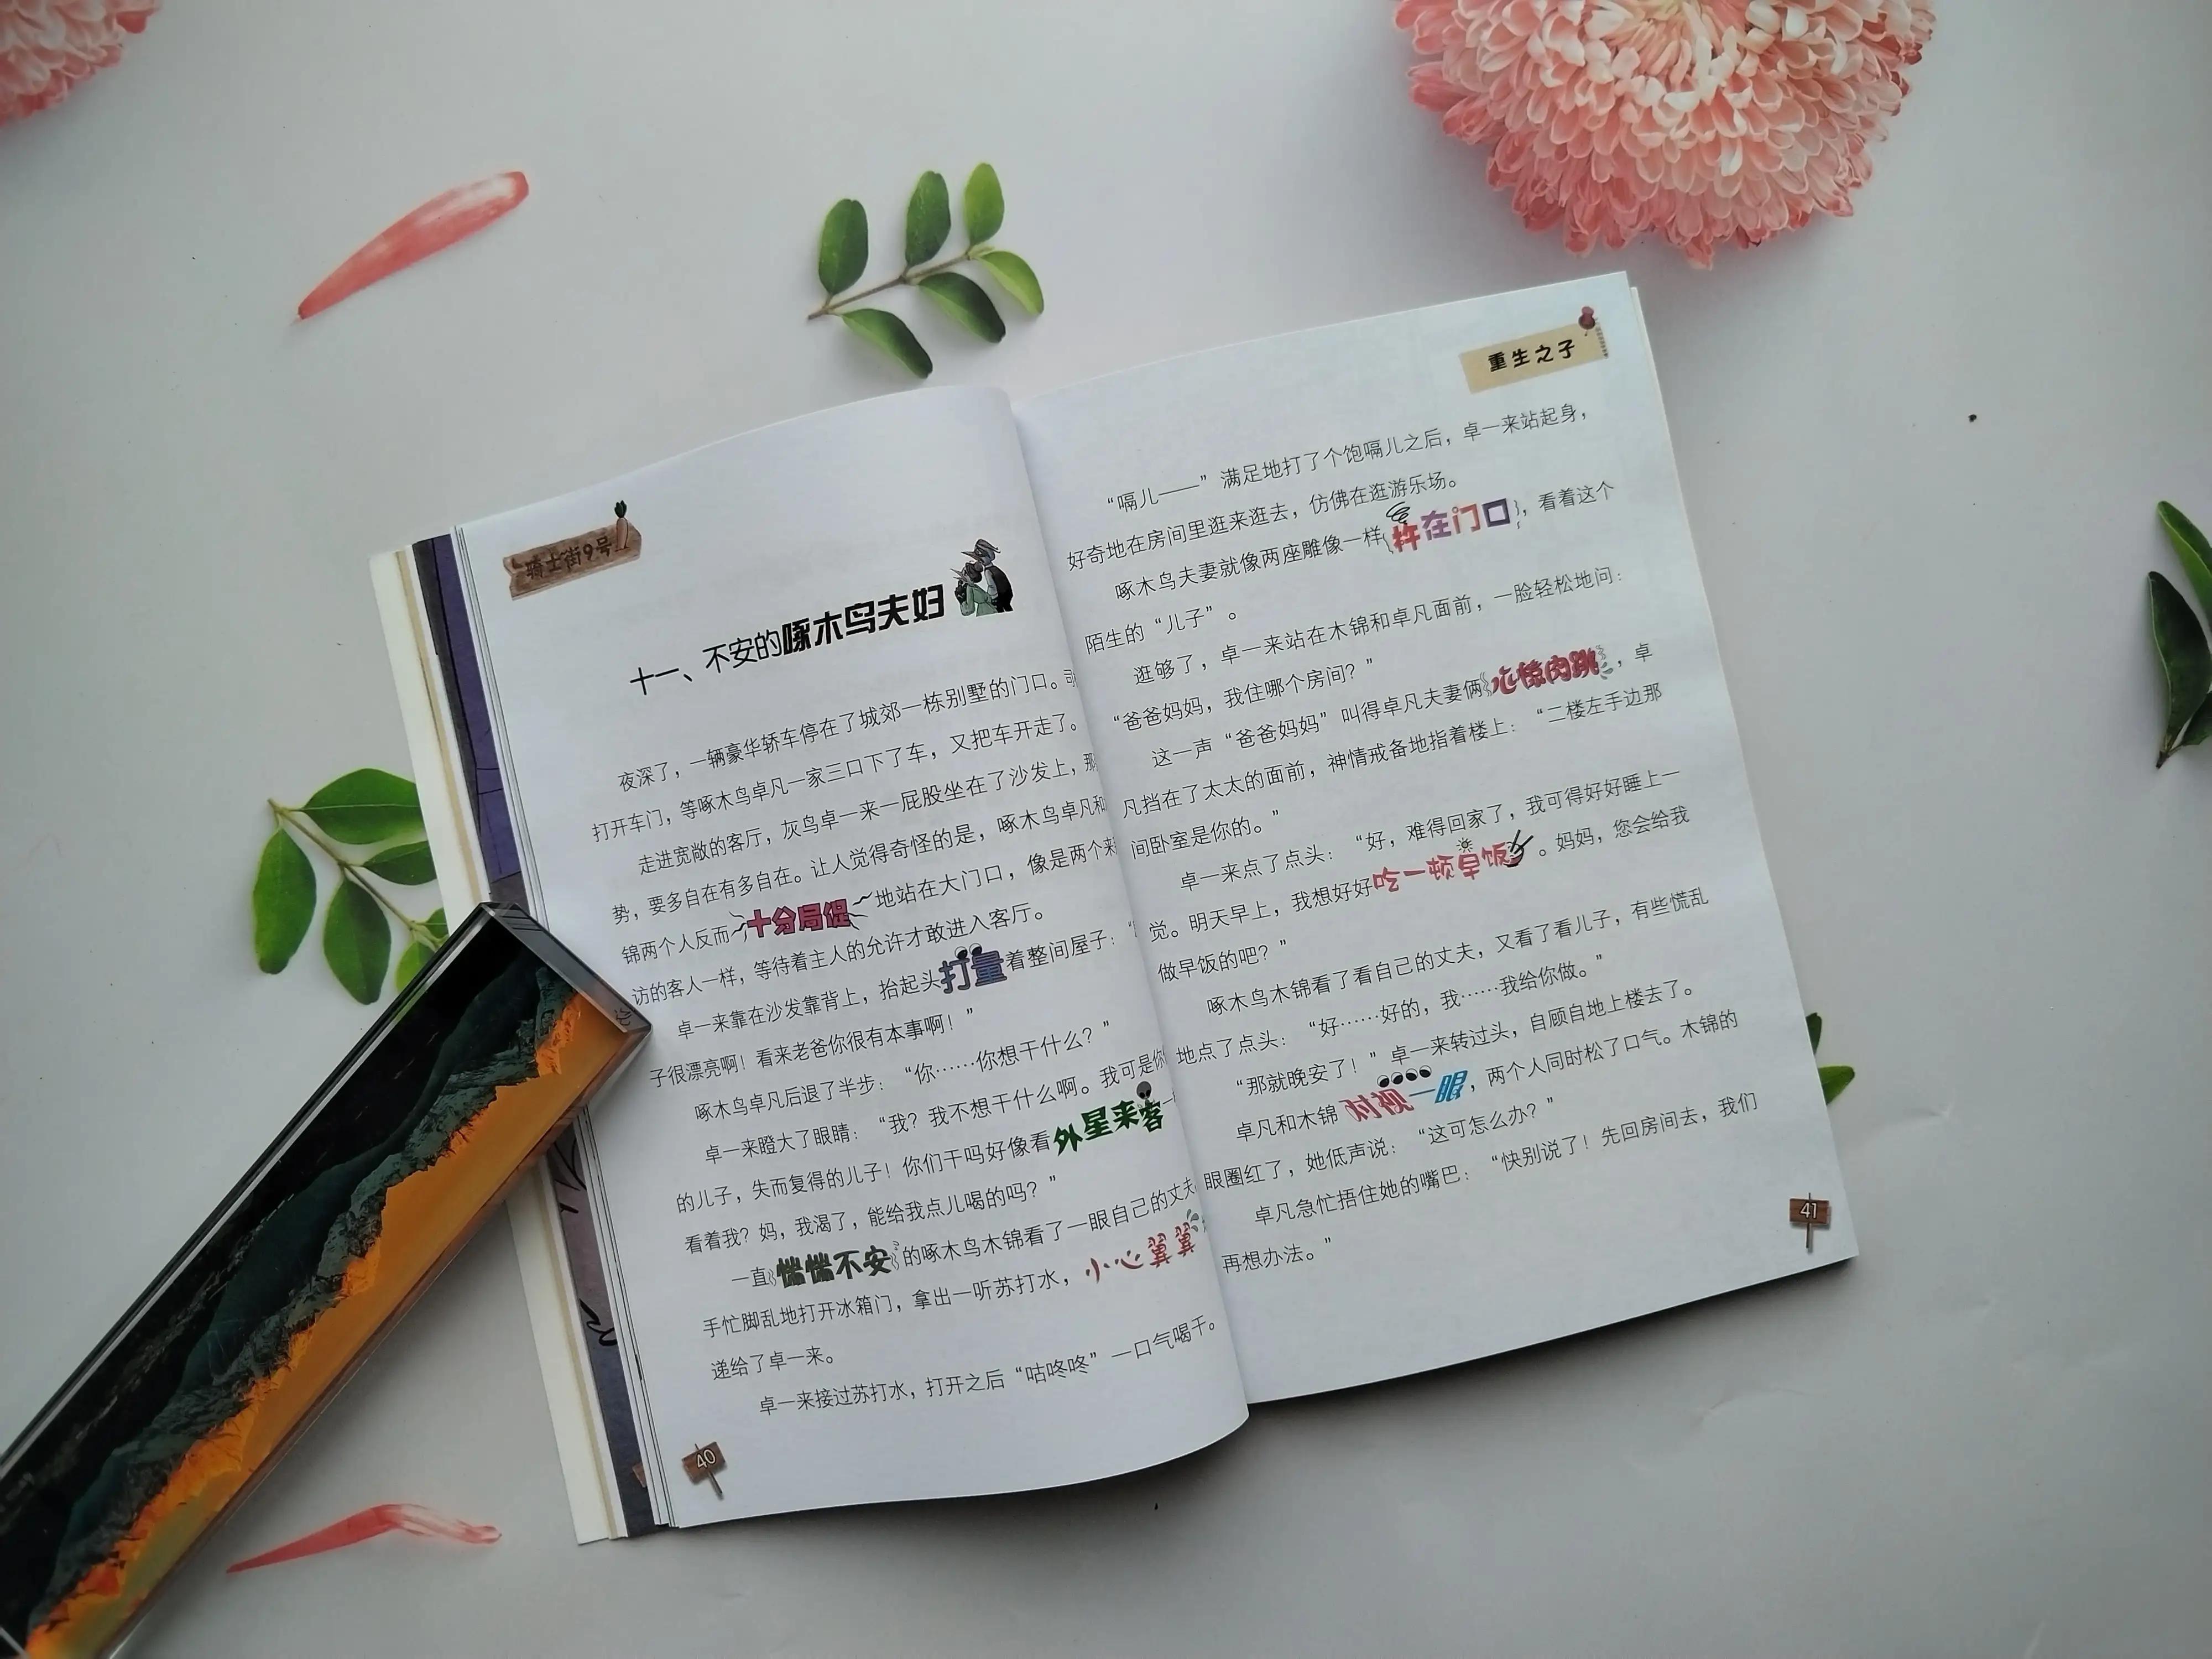 骑士街9号
十一、不安的啄木鸟夫妇
夜深了，一辆豪华轿车停在了城郊一栋别墅的门口。
打开车门，等啄木鸟卓凡一家三口下了车，又把车开走了。
走进宽敞的客厅，灰鸟卓一来一屁股坐在了沙发上，那
势，要多自在有多自在。让人觉得奇怪的是，啄木鸟卓凡和
锦两个人反而十分局促地站在大门口，像是两个来
访的客人一样，等待着主人的允许才敢进入客厅。
卓一来靠在沙发靠背上，抬起头打量着整间屋子：“
子很漂亮啊！看来老爸你很有本事啊！”
啄木鸟卓凡后退了半步：“你……你想干什么？”
卓一来瞪大了眼睛：“我？我不想干什么啊。我可是你
的儿子，失而复得的儿子！你们干吗好像看外星来客一
看着我？妈，我渴了，能给我点儿喝的吗？”
一直惴惴不安的啄木鸟木锦看了一眼自己的丈夫
手忙脚乱地打开冰箱门，拿出一听苏打水，小心翼翼
递给了卓一来。
卓一来接过苏打水，打开之后“咕咚咚”一口气喝干。
40
重生之子
“嗝儿——”满足地打了个饱嗝儿之后，卓一来站起身，
好奇地在房间里逛来逛去，仿佛在逛游乐场。
啄木鸟夫妻就像两座雕像一样杵在门口，看着这个
陌生的“儿子”。
逛够了，卓一来站在木锦和卓凡面前，一脸轻松地问：
“爸爸妈妈，我住哪个房间？”
这一声“爸爸妈妈”叫得卓凡夫妻俩心惊肉跳，卓
凡挡在了太太的面前，神情戒备地指着楼上：“二楼左手边那
间卧室是你的。”
卓一来点了点头：“好，难得回家了，我可得好好睡上一
觉。明天早上，我想好好吃一顿早饭。妈妈，您会给我
做早饭的吧？”
啄木鸟木锦看了看自己的丈夫，又看了看儿子，有些慌乱
地点了点头：“好……好的，我……我给你做。”
“那就晚安了！”卓一来转过头，自顾自地上楼去了。
卓凡和木锦对视一眼，两个人同时松了口气。木锦的
眼圈红了，她低声说：“这可怎么办？”
卓凡急忙捂住她的嘴巴：“快别说了！先回房间去，我们
再想办法。”
41